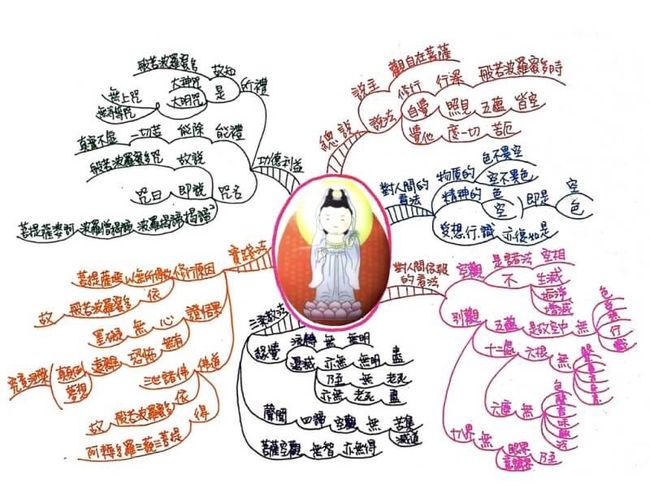 總說
說主
觀自在菩薩
修行 行深 般若波羅蜜多時
說法
自覺 照見 五蘊 皆空
覺他 度一切 苦厄
對人間的
看法
物質的
色不異空
空不異色
精神的
色
空
即是
空
色
受想行識 亦復如是
對人間依報
的看法
空觀 是諸法 空相
不
生滅
垢淨
增減
別觀
五蘊 是故空中 無
色
受
想
行
識
十二處
六根 無
眼
耳
鼻
舌
身
意
六塵 無
色
聲
香
味
觸
法
無
眼界
意識界
乃至
三乘教法
緣覺
流轉 無 無明
還滅 亦無 無明 盡
乃至 無 老死
亦無 老死 盡
聲聞 四諦 空觀 無
苦集
滅道
菩薩空觀 無智 亦無得
實證法
修行原因
以無所得故
菩提薩埵
依
般若波羅蜜多
故
證得果
心 無 罣礙
無有 恐怖
遠離
顛倒
夢想
究竟涅槃
佛道
三世諸佛
依 般若波羅蜜多 故
得
阿耨多羅三藐三菩提
功德利益
所禮
故知
般若波羅蜜多
是
大神咒
大明咒
無上咒
無等等咒
能禮
能除 一切苦 真實不虛
咒名
故說 般若波羅蜜多咒
即說 咒曰
揭諦 波羅揭諦 波羅僧揭諦 菩提薩婆訶